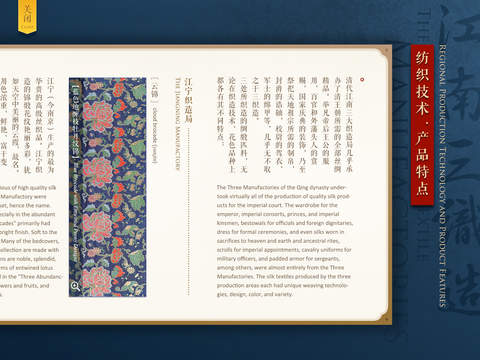 纺织技术·产品特点
REGIONAL PRODUCTION TECHNOLOGY AND PRODUCT FEATURES
清代江南三大织造局几乎承
办了清王朝所需的全部丝绸
精品，举凡帝后王公的服
用，百官和外藩头人的赏
赐，国家庆典的装饰，乃至
祭祀天地祖宗所需的制帛、
军士的绵甲等，几乎无不取
之于三织造。
三处所织造的绸缎匹料，无
论在织造技术、花色品种上
都各有其不同特点。
The Three Manufactories of the Qing dynasty under-
took virtually all of the production of quality silk prod-
ucts for the imperial court. The wardrobe for the
emperor, imperial consorts, princes, and imperial
kinsmen, bestowals for officials and foreign dignitaries,
dress for formal ceremonies, and even silks worn in
sacrifices to heaven and earth and ancestral rites,
scrolls for imperial appointments, cavalry uniforms for
military officers, and padded armor for sergeants,
among others, were almost entirely from the Three
Manufactories. The silk textiles produced by the three
production areas each had unique weaving technolo-
gies, design, color, and variety.
江宁织造局
THE JIANGNING MANUFACTORY
［云锦］
cloud brocade
江宁（今南京）生产的最为
华贵的高级丝织品，江宁织
造的锦缎花纹艳丽多姿，犹
如天空中美丽的云霞，故名。
用色浓重，鲜艳，富于变
ious of high quality silk
Manufactory were
et, hence the name.
ecially in the abundant
cades" primarily had
right finish. Soft to the
Many of the bedcovers,
ollection are made with
ns are noble, splendid,
ms of entwined lotus
d in the "Three Abundanc-
wers and fruits, and